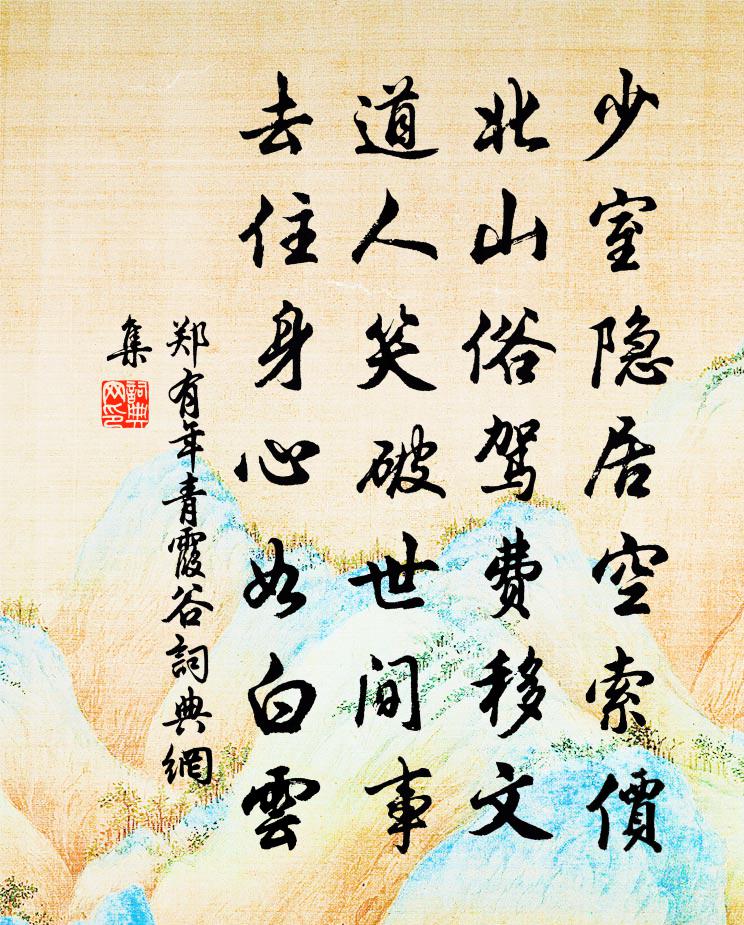 少室隐居空索價
北山俗驾费移文
道人笑破世间事
去住身心如白雲
郑有年青霞谷詞典網
集
詞典網印